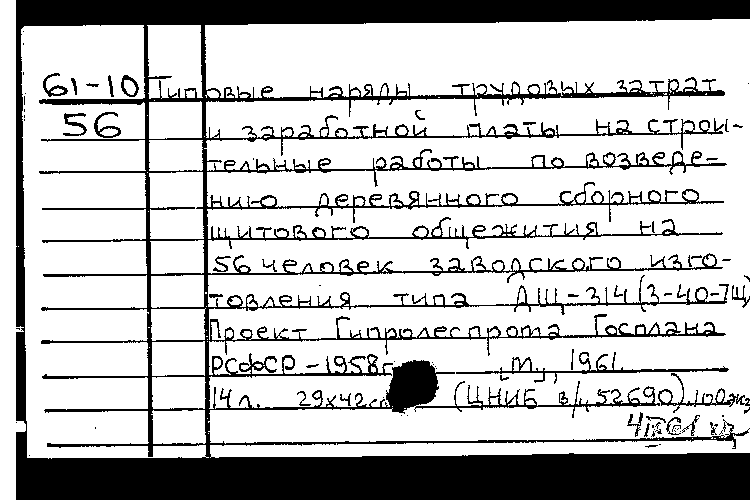 61-10 Типовые наряды трудовых затрат
56 и заработной платы на строи-
тельные работы по возведе-
нию деревянного сборного
щитового общежития на
56 человек заводского изго-
товления типа ДЩ-314 (3-40-7Щ)
Проект Гипролеспрома Госплана
РСФСР - 1958г. [М.], 1961.
14 л. 29х42см (ЦНИБ з/ц 52690). 100экз